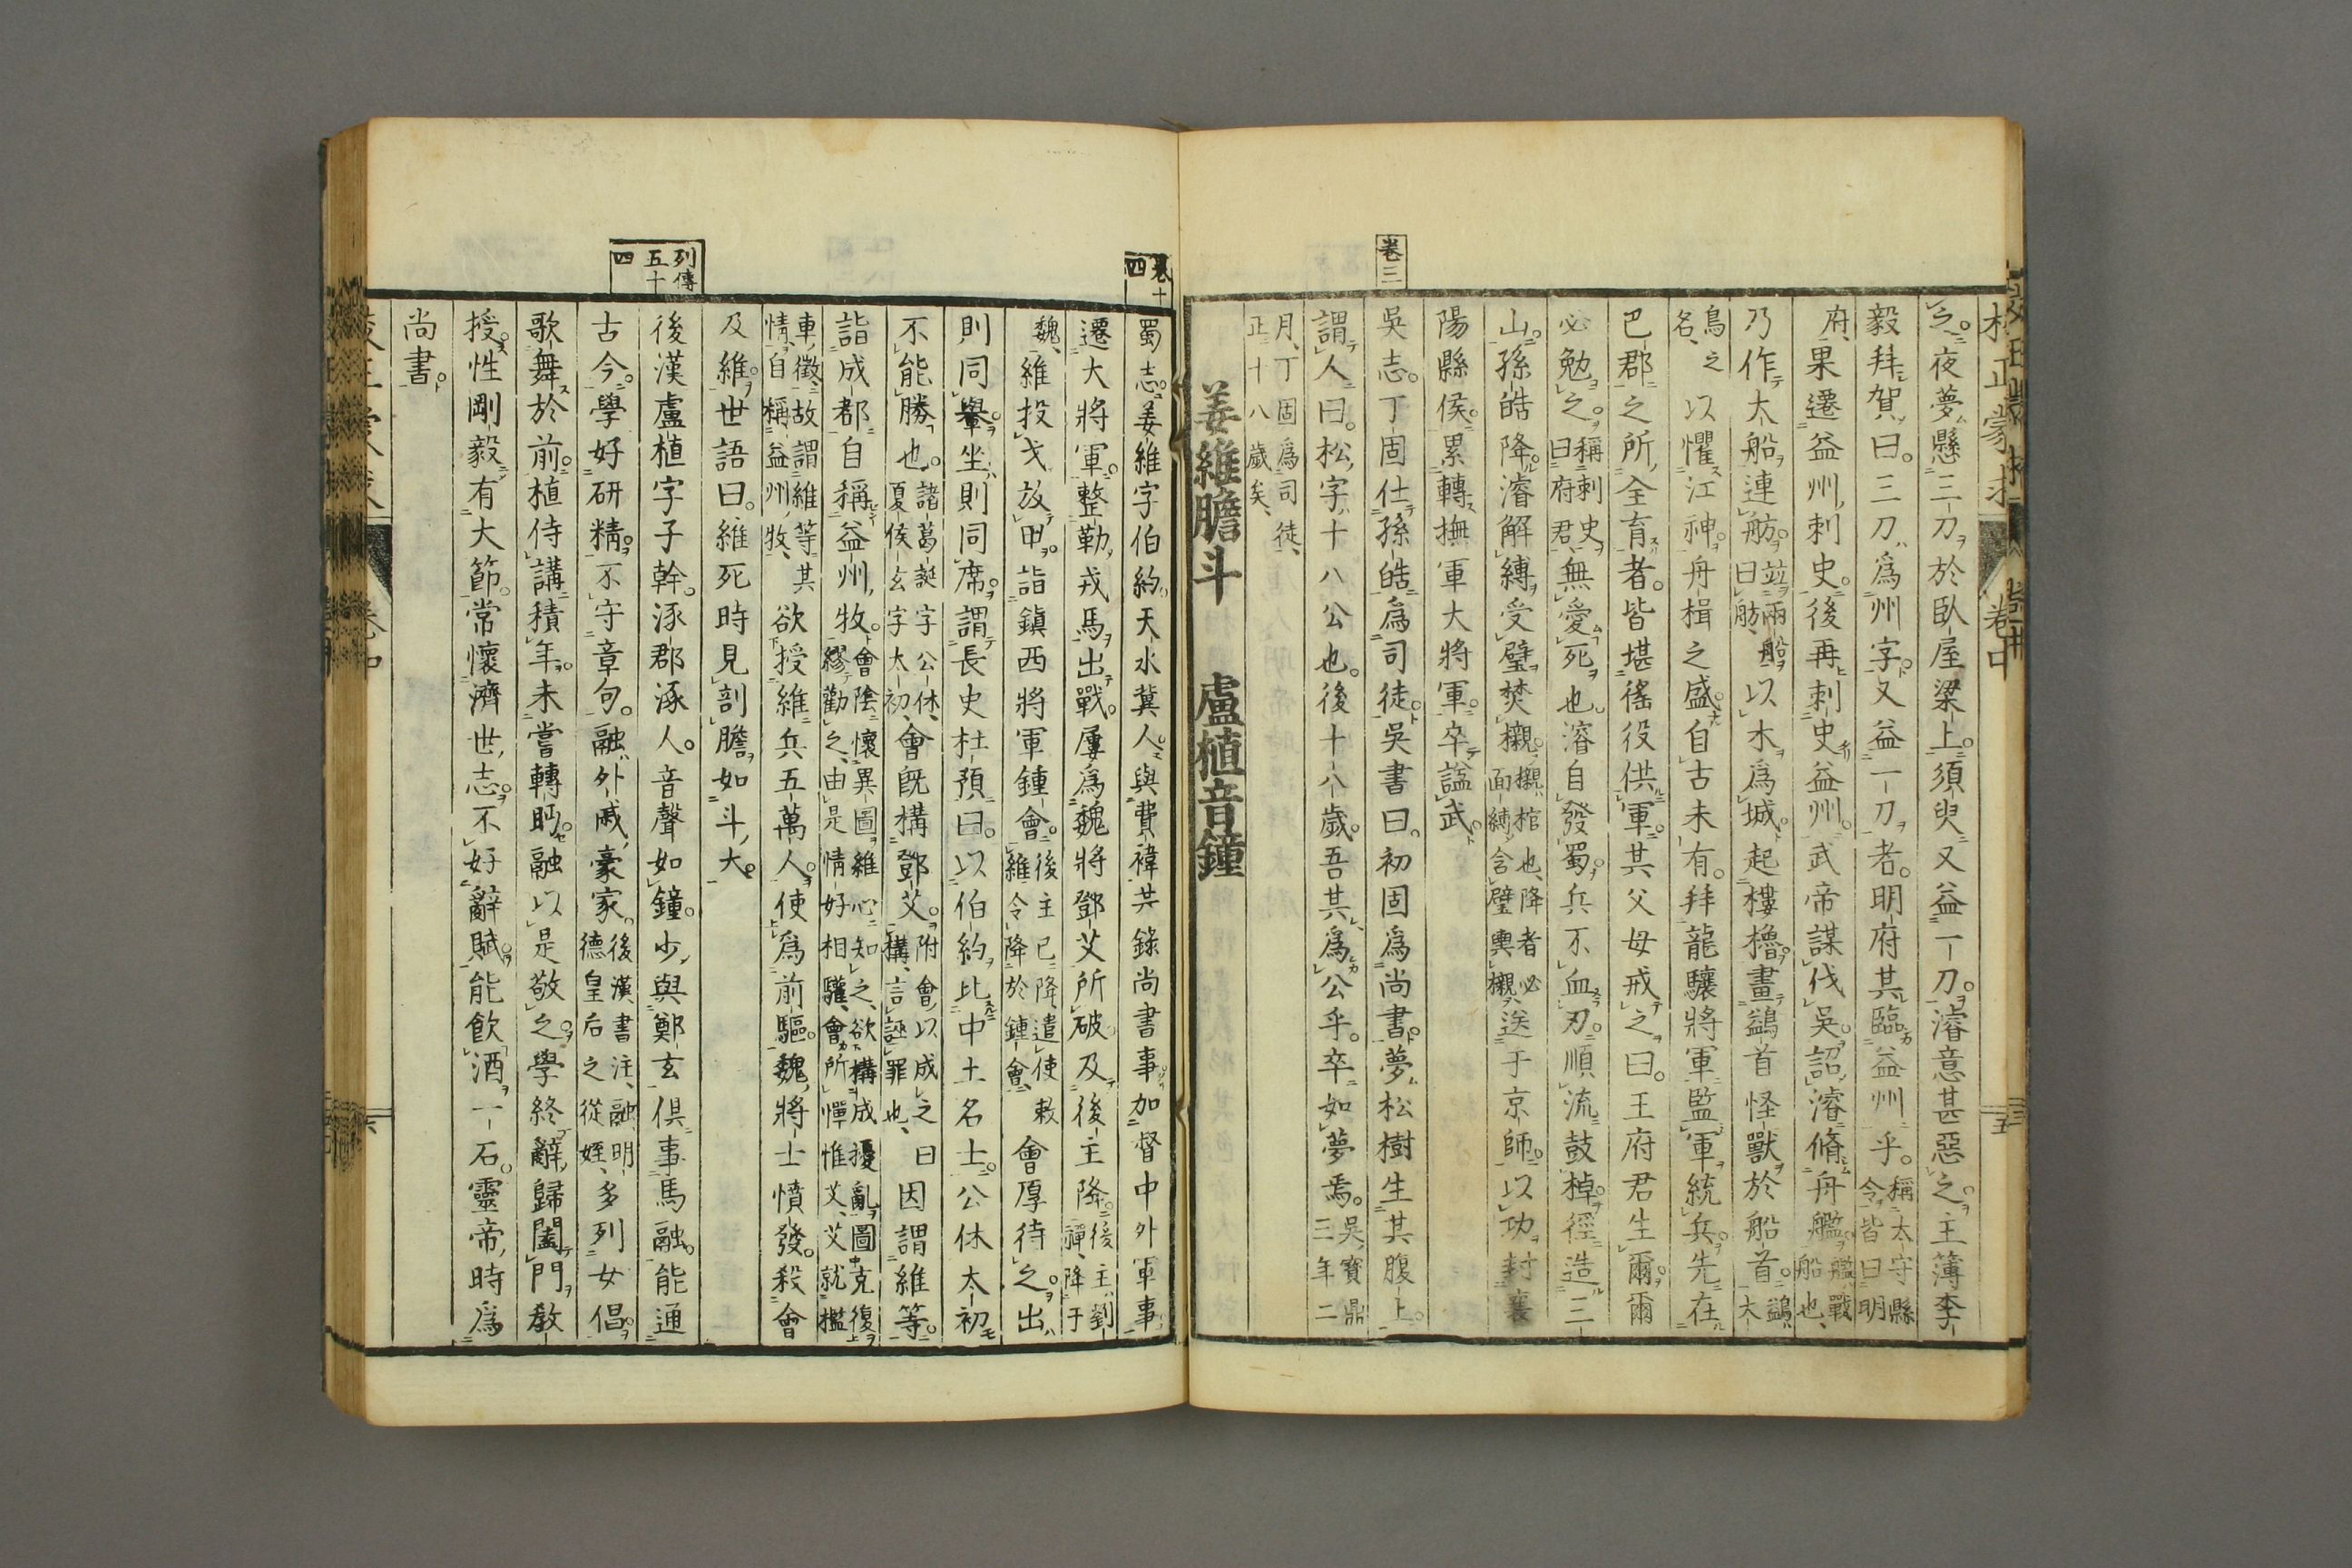 卷三
之夜夢懸三刀於臥屋梁上須臾又益一刀濬意甚惡之主簿李
毅拜賀曰三刀爲州字又益一刀者明府其臨益州乎稱太守縣令皆曰明
府果遷益州刺史後再刺史益州武帝謀伐吳詔濬脩舟艦艦戰船也
乃作大船連舫竝兩船曰舫以木爲城起樓櫓畫鷁首怪獸於船首鷁大
鳥之名以懼江神舟楫之盛自古未有拜龍驤將軍監軍統兵先在
巴郡之所全育者皆堪徭役供軍其父母戒之曰王府君生爾爾
必勉之稱刺史曰府君無愛死也濬自發蜀兵不血刃順流鼓棹徑造三
山孫皓降濬解縛受璧焚櫬櫬棺也降者必面縛含璧輿櫬送于京師以功封襄
陽縣侯累轉撫軍大將軍卒諡武
吳志丁固仕孫皓爲司徒吳書曰初固爲尚書夢松樹生其腹上
謂人曰松字十八公也後十八歲吾其爲公乎卒如夢焉吳寶鼎三年二
月丁固爲司徒正十八歲矣
姜維膽斗　盧植音鐘
卷十四
蜀志姜維字伯約天水冀人與費褘共錄尚書事加督中外軍事
遷大將軍整勒戎馬出戰屢爲魏將鄧艾所破及後主降後主劉禪降于
魏維投戈放甲詣鎭西將軍鍾會後主已降遣使敕維令降於鍾會會厚待之出
則同轝坐則同席謂長史杜預曰以伯約比中土名士公休太初
不能勝也諸葛誕字公休夏侯玄字太初會既構鄧艾附會以成之曰構言誣罪也因謂維等
詣成都自稱益州牧會陰懷異圖維心知之欲構成擾亂圖克復繆勸之由是情好相驩會所憚惟艾艾就檻
車徵故謂維等其情自稱益州牧欲授維兵五萬人使爲前驅魏將士憤發殺會
及維世語曰維死時見剖膽如斗大
列傳五十四
後漢盧植字子幹涿郡涿人音聲如鐘少與鄭玄俱事馬融能通
古今學好研精不守章句融外戚豪家後漢書注融明德皇后之從姪多列女倡
歌舞於前植侍講積年未嘗轉眄融以是敬之學終辭歸闔門敎
授性剛毅有大節常懷濟世志不好辭賦能飮酒一石靈帝時爲
尚書